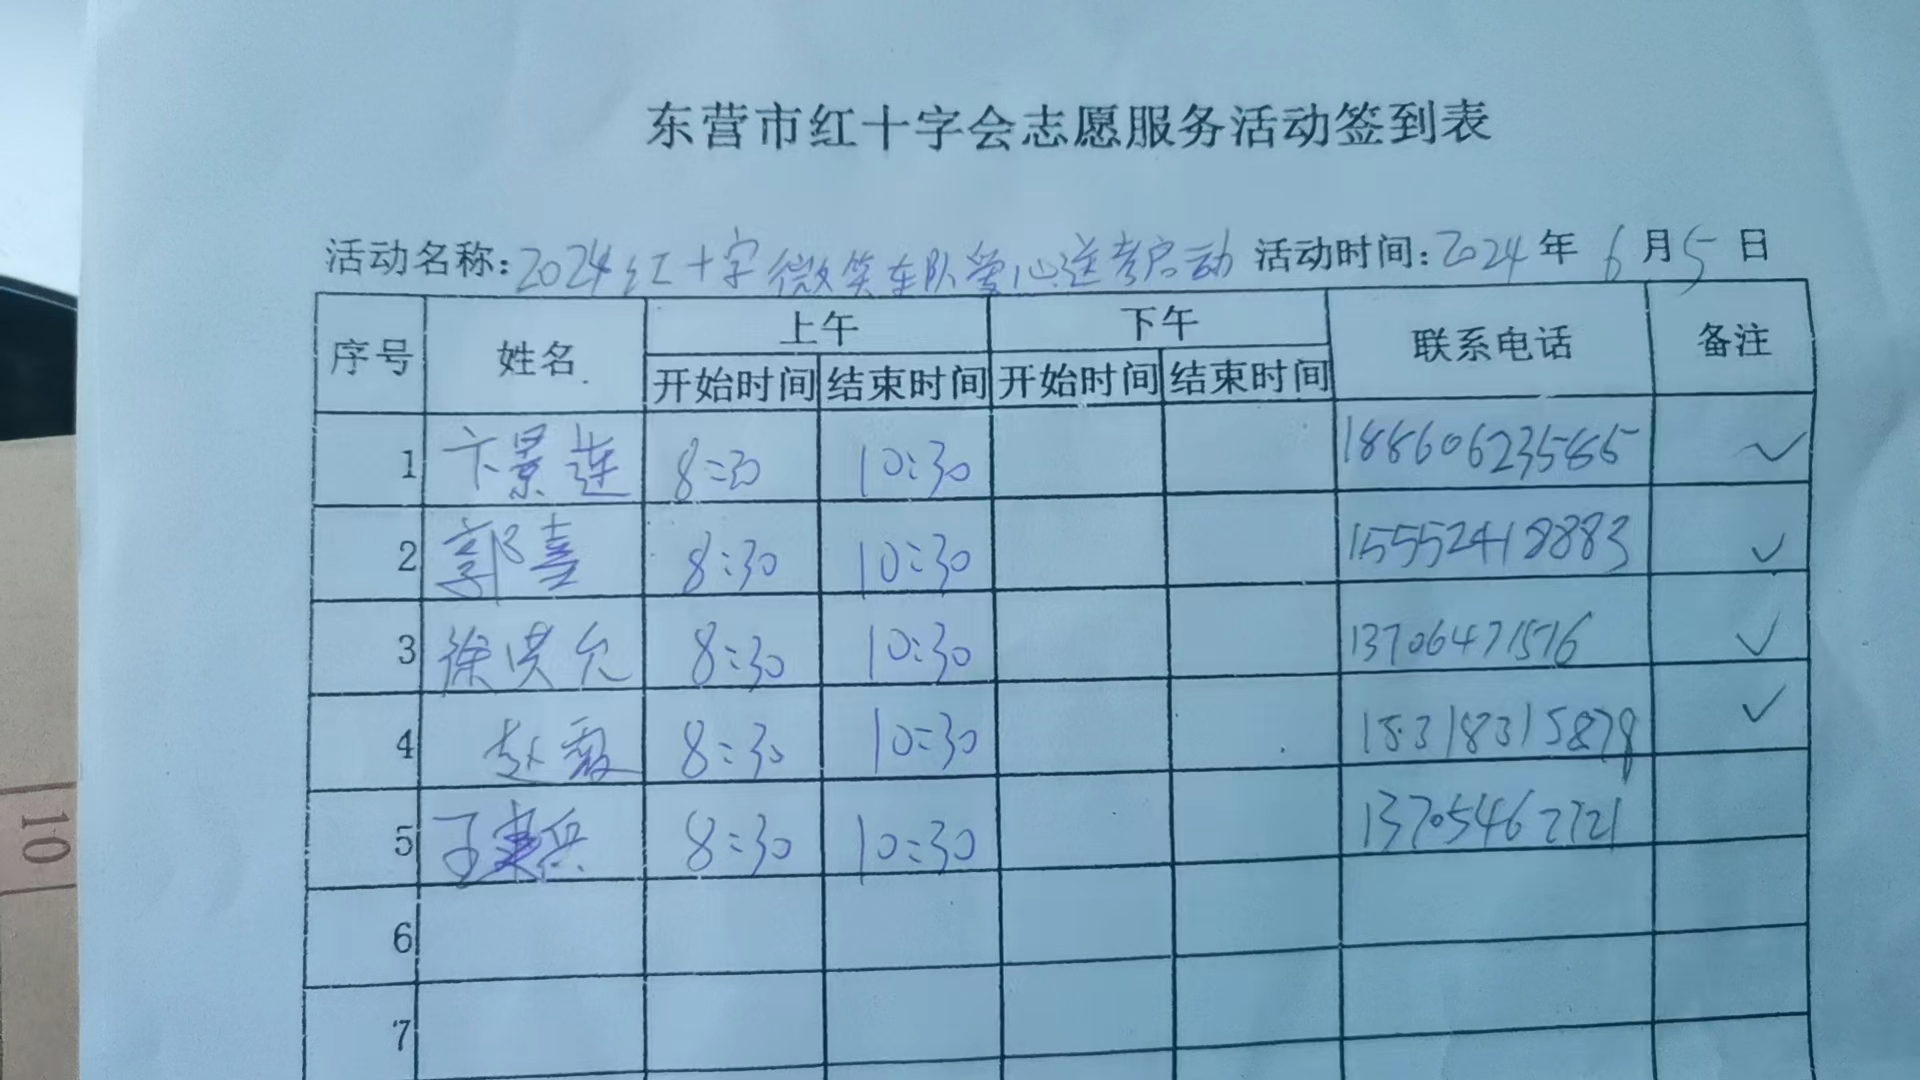 东营市红十字会志愿服务活动签到表
活动名称:2024红十字微笑车队爱心送考启动 活动时间:2024年6月5日
序号 姓名 上午 下午 联系电话 备注
开始时间 结束时间 开始时间 结束时间
1 卞景莲 8:30 10:30 18860623585 ✓
2 郭喜 8:30 10:30 15552418883 ✓
3 徐洪允 8:30 10:30 13706471576 ✓
4 赵霞 8:30 10:30 ✓
5 王建兵 8:30 10:30 13705462721
6
7
10